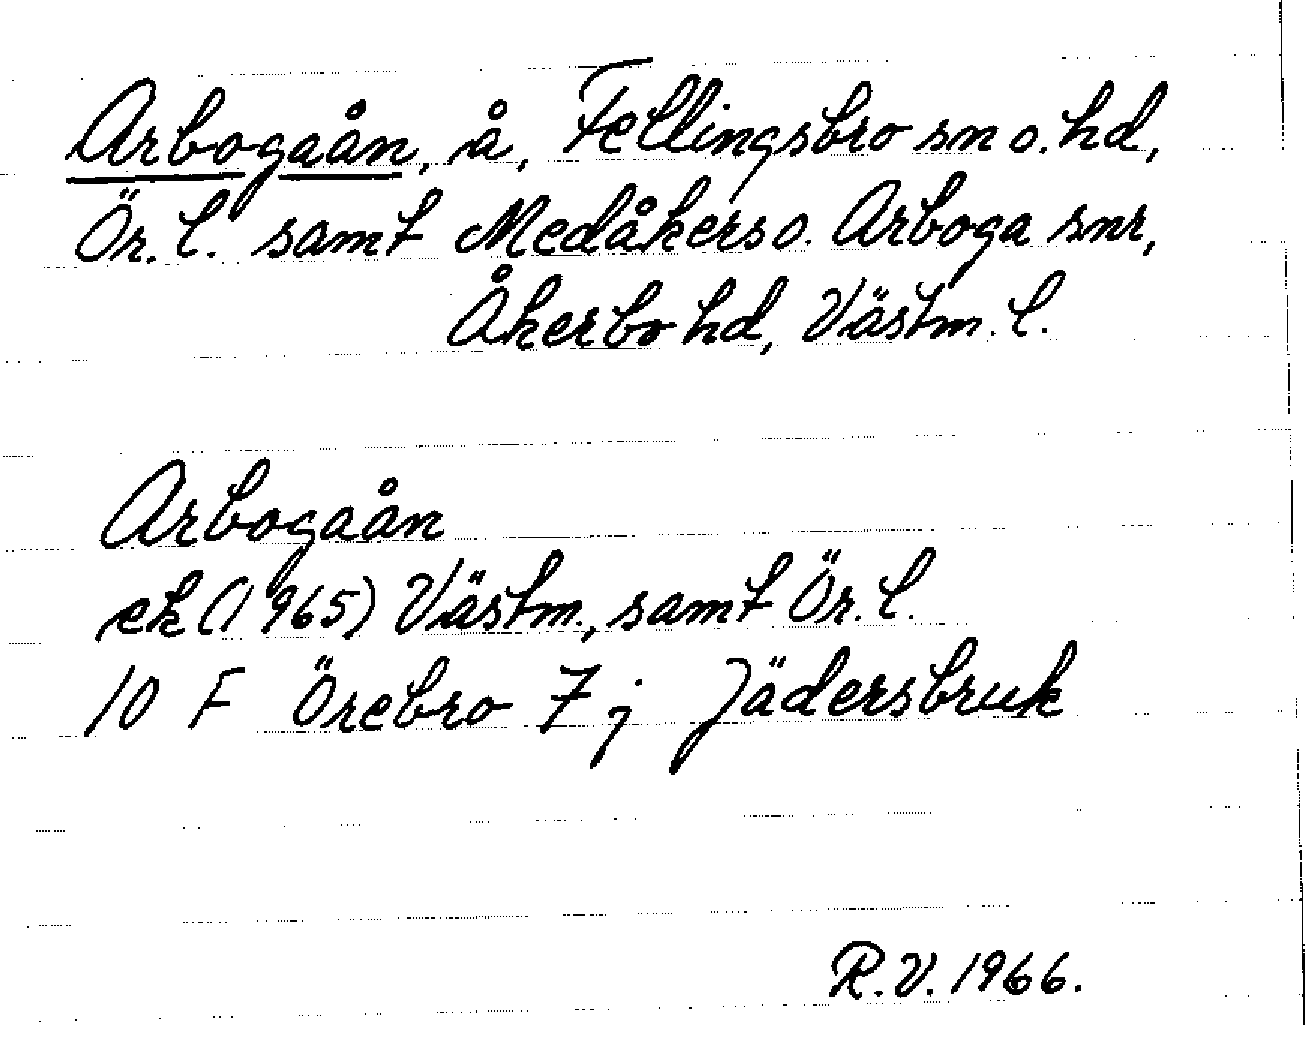 Arbogaån, å, Fellingsbro sn o. hd,
Ör. l. samt Medåkers o. Arboga snr,
Åkerbo hd, Västm. l.
Arbogaån
ek (1965) Västm., samt Ör. l.
10 F Örebro 7 j Jädersbruk
R.V. 1966.